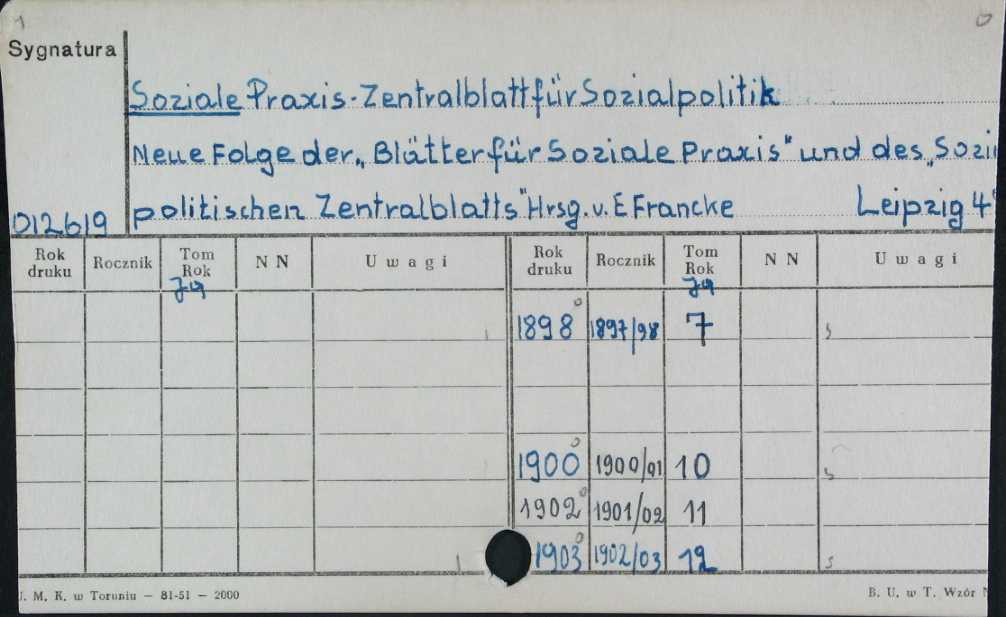 Sygnatura
Soziale Praxis-Zentralblatt für Sozialpolitik
Neue Folge der „Blätter für Soziale Praxis" und des „Sozi
012619 politischen Zentralblatts" Hrsg. v. E Francke Leipzig 4°
Rok druku Rocznik Tom Rok NN Uwagi Rok druku Rocznik Tom Rok NN Uwagi
Jg Jg
1898 1897/98 7
1900 1900/01 10
1902 1901/02 11
1903 1902/03 12
J. M. K. w Toruniu — 81-51 — 2000 B. U. w T. Wzór